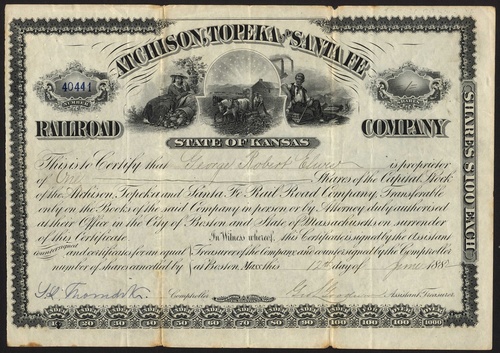 ATCHISON, TOPEKA AND SANTA FE
40441
NUMBER
SHARES
RAILROAD COMPANY
STATE OF KANSAS
SHARES $100 EACH
This is to Certify that George Robert is proprietor
of One Shares of the Capital Stock
of the Atchison, Topeka and Santa Fe Rail Road Company, Transferable
only on the Books of the said Company in person or by Attorney duly authorised
at their Office in the City of Boston and State of Massachusetts on surrender
of this Certificate In Witness whereof, this Certificate is signed by the Assistant
countersigned and certificates for an equal Treasurer of the Company and countersigned by the Comptroller
number of shares cancelled by at Boston Mass. this day of June 188
Comptroller Assistant Treasurer
10 20 30 40 50 60 70 80 90 100 100 OVER 1000